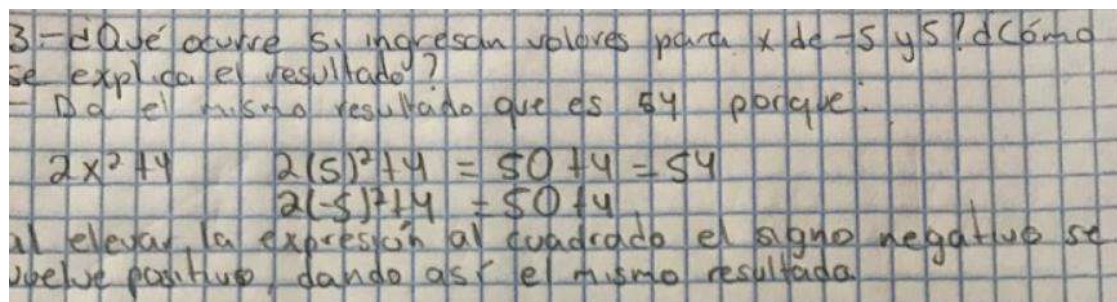 3-¿Qué ocurre si ingresan valores para x de -5 y 5? ¿Cómo
se explica el resultado?
- Da el mismo resultado que es 54 porque:
2x²+4 2(5)²+4 = 50+4 = 54
2(-5)²+4 = 50+4
al elevar la expresión al cuadrado el signo negativo se
vuelve positivo, dando así el mismo resultado